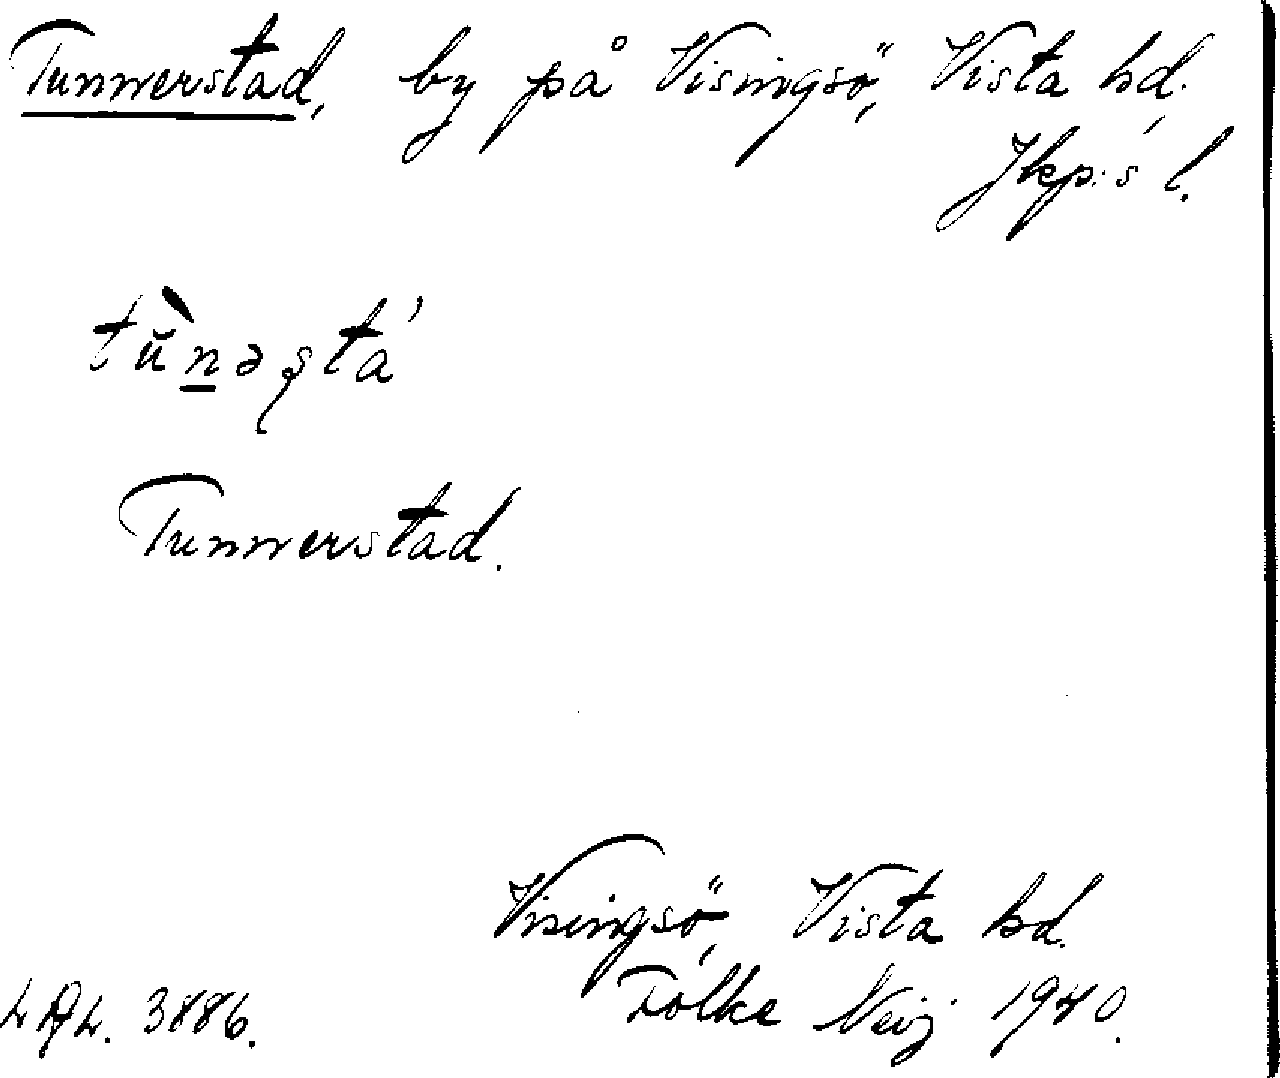 Tunnerstad, by på Visingsö, Vista hd.,
Jkp:s l.
tŭ̀nəstá
Tunnerstad.
Visingsö, Vista hd.
3886. Folke Neij 1940.